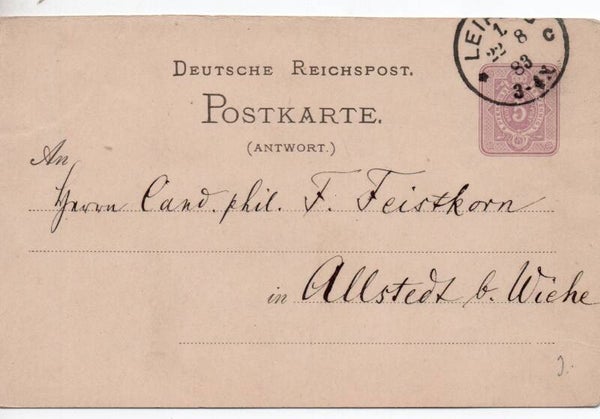 LEIP
1
22 8
83
3-4N
C
DEUTSCHE REICHSPOST.
POSTKARTE.
(ANTWORT.)
5
An
Herrn Cand. phil. F. Feistkorn
in Allstedt b. Wiehe